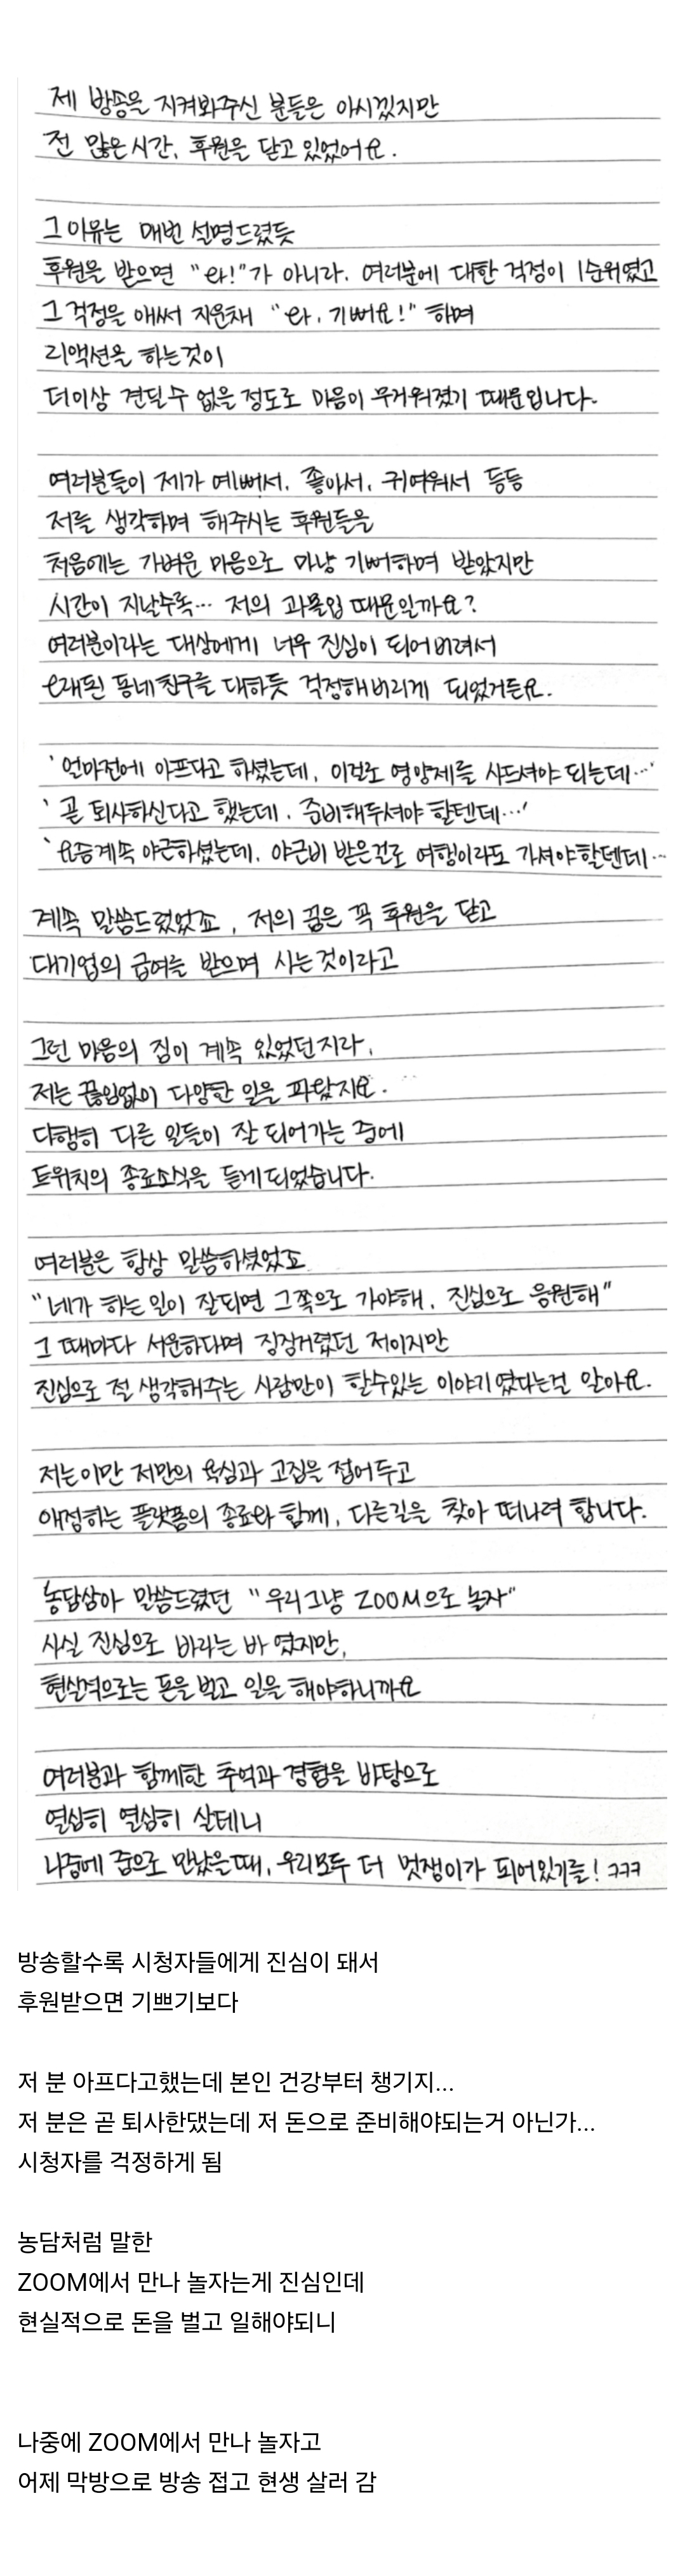 제 방송을 지켜봐주신 분들은 아시겠지만
전 많은 시간, 후원을 닫고 있었어요.
그 이유는 매번 설명드렸듯
후원을 받으면 "와!"가 아니라, 여러분에 대한 걱정이 1순위였고
그 걱정을 애써 지운채 "와, 기뻐요!" 하며
리액션을 하는것이
더이상 견딜수 없을 정도로 마음이 무거워졌기 때문입니다.
여러분들이 제가 예뻐서, 좋아서, 귀여워서 등등
저를 생각하며 해주시는 후원들을
처음에는 가벼운 마음으로 마냥 기뻐하며 받았지만
시간이 지날수록… 저의 과몰입 때문일까요?
여러분이라는 대상에게 너무 진심이 되어버려서
오래된 동네친구를 대하듯 걱정해버리게 되었거든요.
'얼마전에 아프다고 하셨는데, 이걸로 영양제를 사드셔야 되는데…'
'곧 퇴사하신다고 했는데, 준비해두셔야 할텐데…'
'요즘계속 야근하셨는데, 야근비 받은걸로 여행이라도 가셔야할텐데…
계속 말씀드렸었죠, 저의 꿈은 꼭 후원을 닫고
대기업의 급여를 받으며 사는것이라고
그런 마음의 짐이 계속 있었던지라,
저는 끊임없이 다양한 일을 파왔지요.
다행히 다른 일들이 잘 되어가는 중에
트위치의 종료소식을 듣게되었습니다.
여러분은 항상 말씀하셨었죠
"네가 하는 일이 잘되면 그쪽으로 가야해, 진심으로 응원해"
그 때마다 서운하다며 징징거렸던 저이지만
진심으로 절 생각해주는 사람만이 할수있는 이야기였다는걸 알아요.
저는이만 저만의 욕심과 고집을 접어두고
애정하는 플랫폼의 종료와 함께, 다른길을 찾아 떠나려 합니다.
농담삼아 말씀드렸던 "우리그냥 ZOOM으로 놀자"
사실 진심으로 바라는 바 였지만,
현실적으로는 돈을 벌고 일을 해야하니까요
여러분과 함께한 추억과 경험을 바탕으로
열심히 열심히 살테니
나중에 줌으로 만났을때, 우리모두 더 멋쟁이가 되어있기를! ㅋㅋㅋ
방송할수록 시청자들에게 진심이 돼서
후원받으면 기쁘기보다
저 분 아프다고했는데 본인 건강부터 챙기지...
저 분은 곧 퇴사한댔는데 저 돈으로 준비해야되는거 아닌가...
시청자를 걱정하게 됨
농담처럼 말한
ZOOM에서 만나 놀자는게 진심인데
현실적으로 돈을 벌고 일해야되니
나중에 ZOOM에서 만나 놀자고
어제 막방으로 방송 접고 현생 살러 감